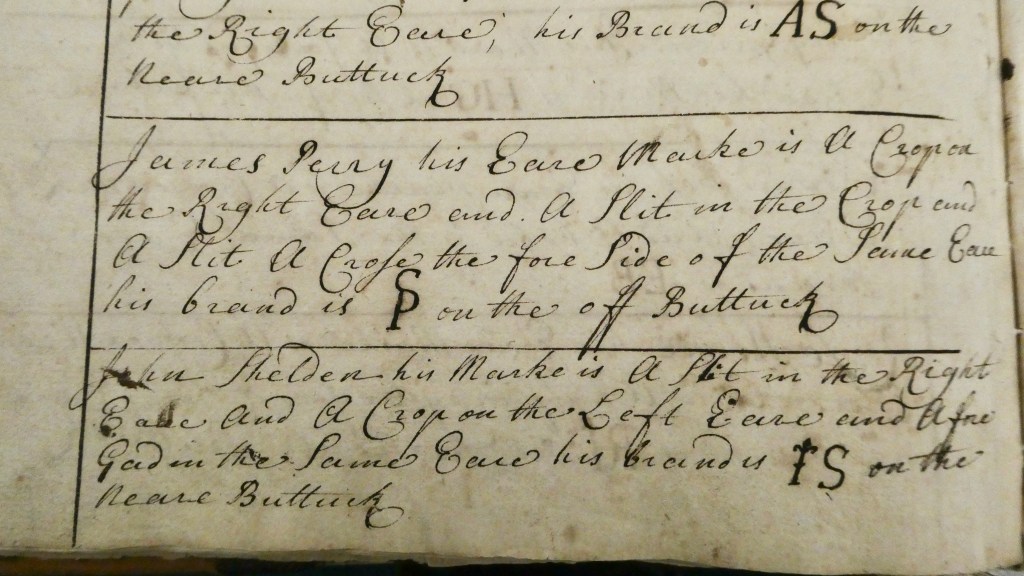 the Right Eare, his Brand is AS on the
Neare Buttuck
James Perry his Eare Marke is A Crop on
the Right Eare and A Slit in the Crop and
A Slit A Crose the fore Side of the Same Eare
his brand is on the off Buttuck
John Shelden his Marke is A Slit in the Right
Eare And A Crop on the Left Eare and A fore
Gad in the Same Eare his brand is IS on the
Neare Buttuck